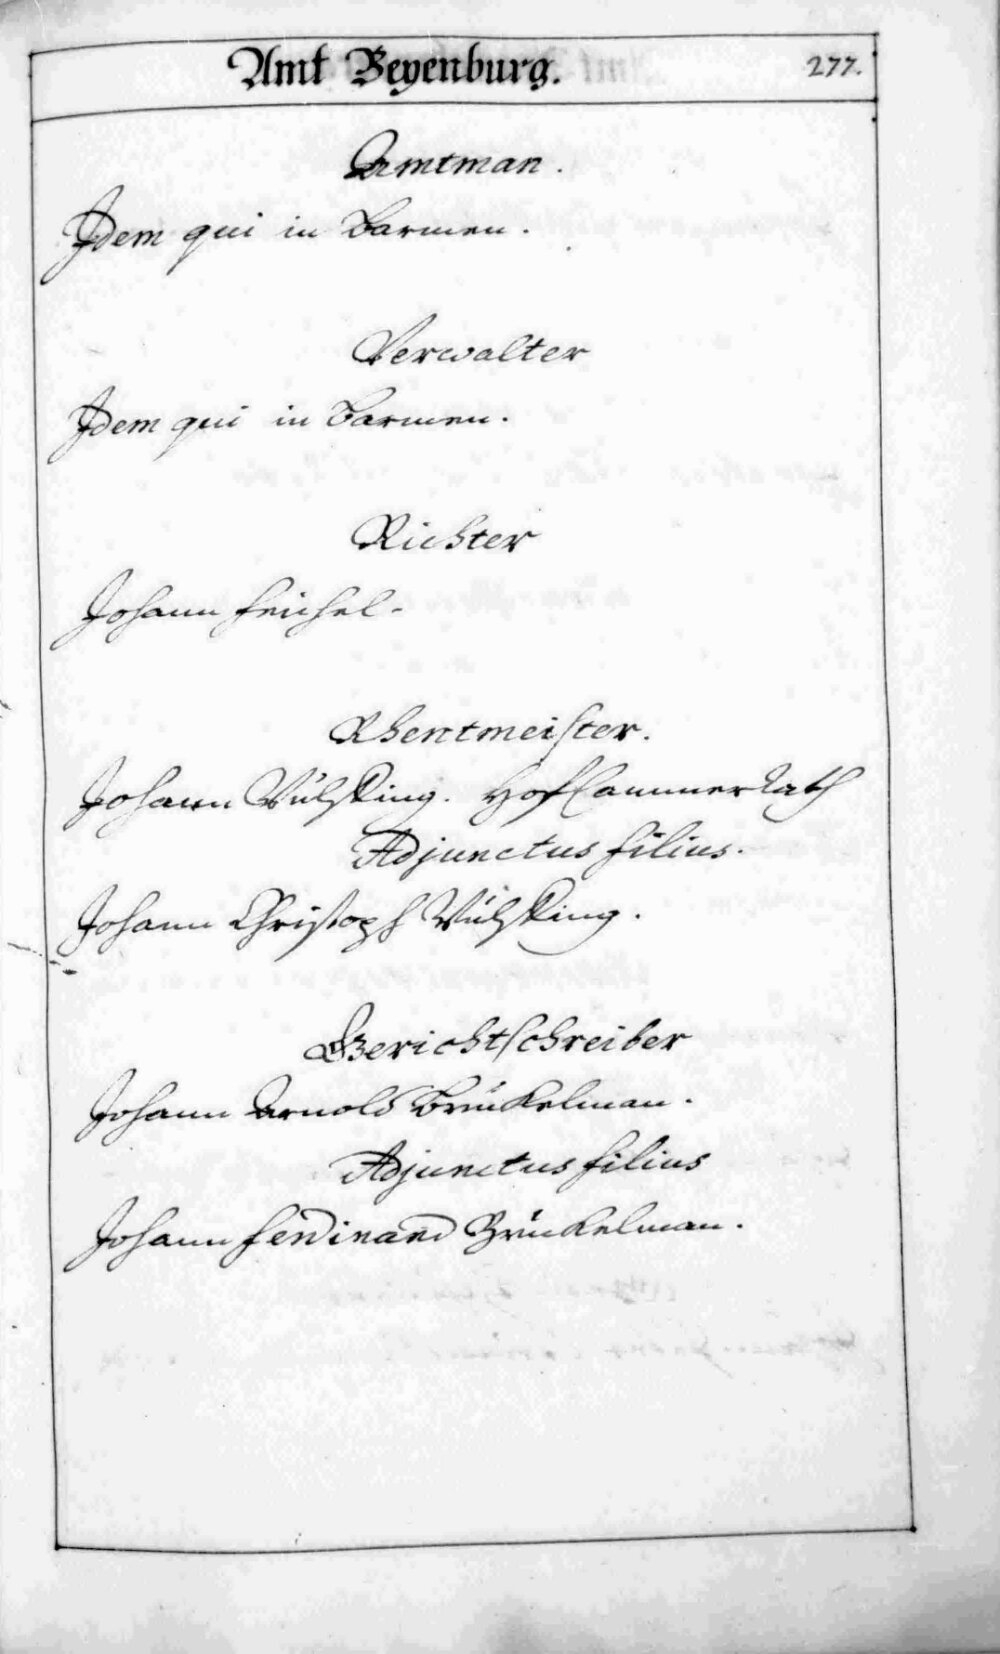 Amt Beyenburg.
277.
Amtman.
Idem qui in Barmen.
Verwalter
Idem qui in Barmen.
Richter
Johann
Rhentmeister.
Johann Wülfling. HofCammerRath
Adjunctus filius.
Johann Christoph Wülfling.
Gerichtschreiber
Johann Arnold Brückelman.
Adjunctus filius
Johann Ferdinand Brückelman.